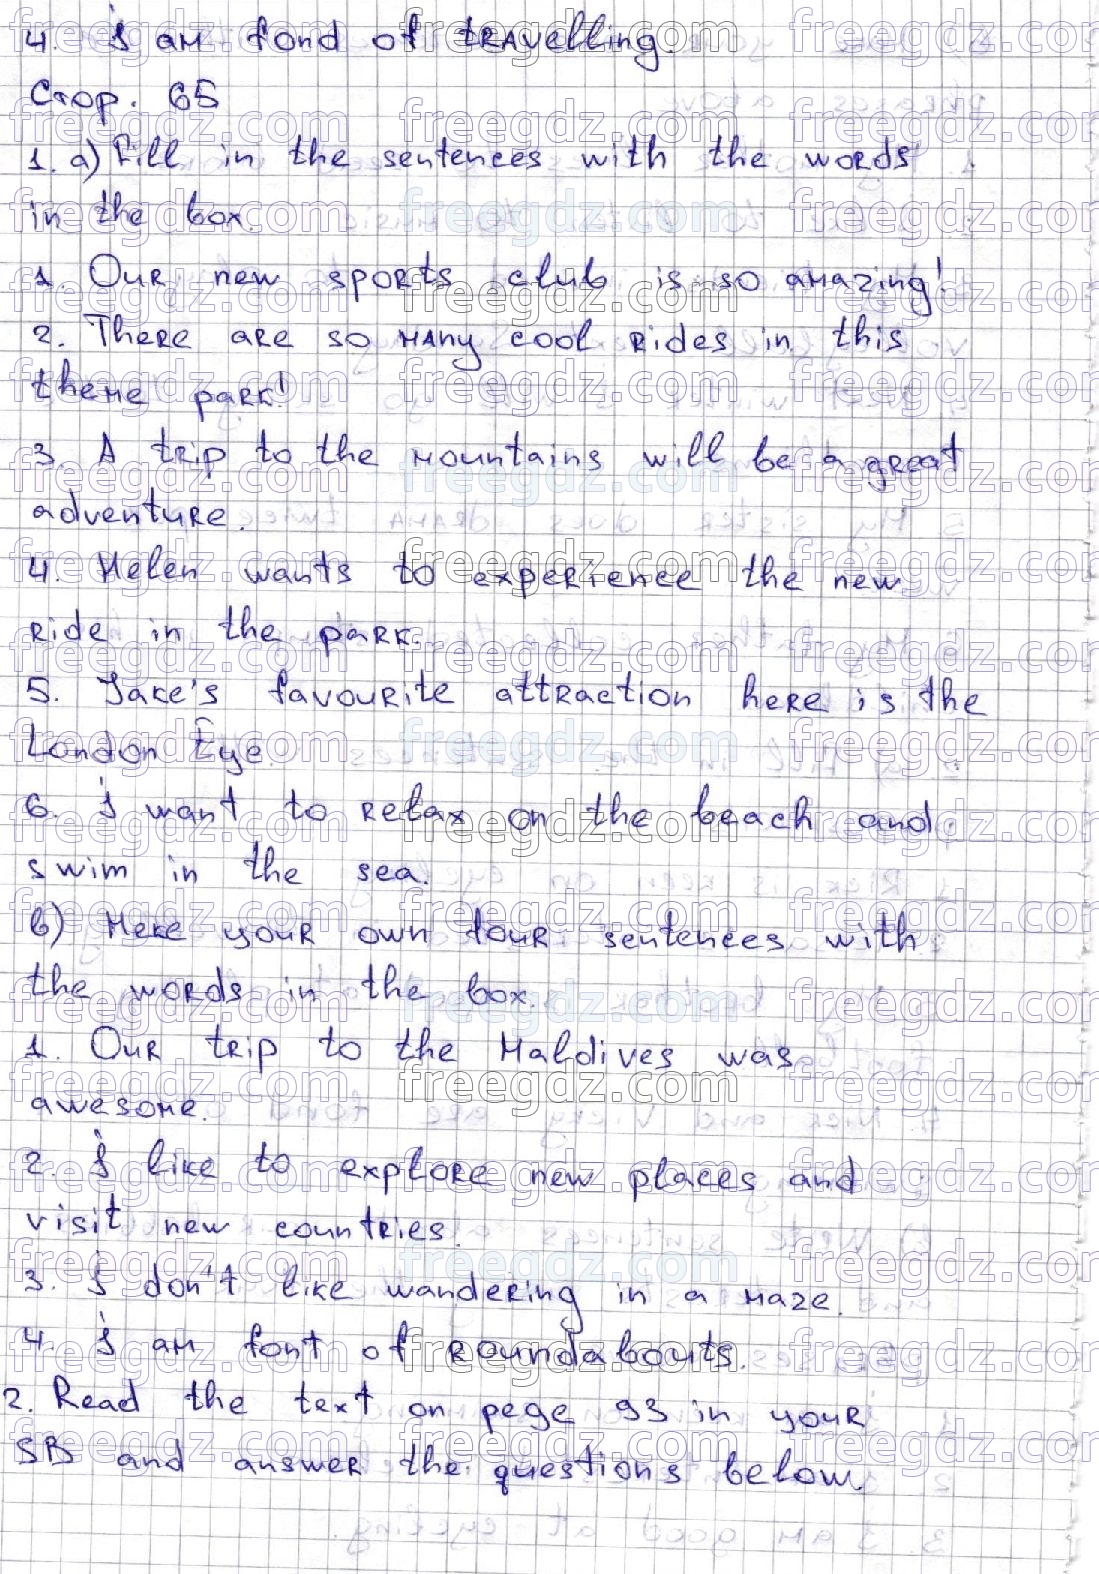 4. I am fond of travelling.
Стор. 65
1. a) Fill in the sentences with the words
in the box.
1. Our new sports club is so amazing!
2. There are so many cool rides in this
theme park!
3. A trip to the mountains will be a great
adventure.
4. Helen wants to experience the new
ride in the park.
5. Jake's favourite attraction here is the
London Eye.
6. I want to relax on the beach and
swim in the sea.
b) Make your own four sentences with
the words in the box.
1. Our trip to the Maldives was
awesome.
2. I like to explore new places and
visit new countries.
3. I don't like wandering in a maze.
4. I am font of roundabouts.
2. Read the text on pege 93 in your
SB and answer the questions below.